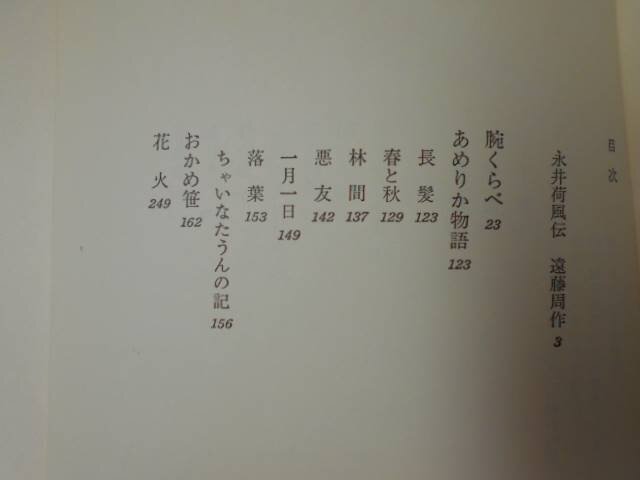 目次
永井荷風伝 遠藤周作 3
腕くらべ 23
あめりか物語 123
長髪 123
春と秋 129
林間 137
悪友 142
一月一日 149
落葉 153
ちゃいなたうんの記 156
おかめ笹 162
花火 249